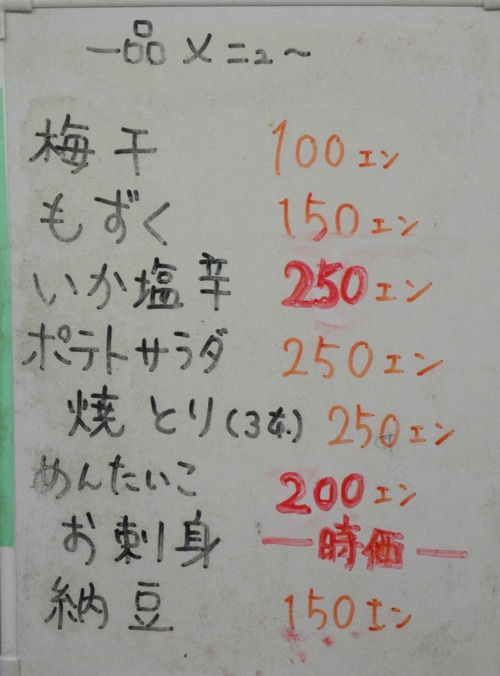 一品メニュ～
梅干 100エン
もずく 150エン
いか塩辛 250エン
ポテトサラダ 250エン
焼とり(3本) 250エン
めんたいこ 200エン
お刺身 ー時価ー
納豆 150エン